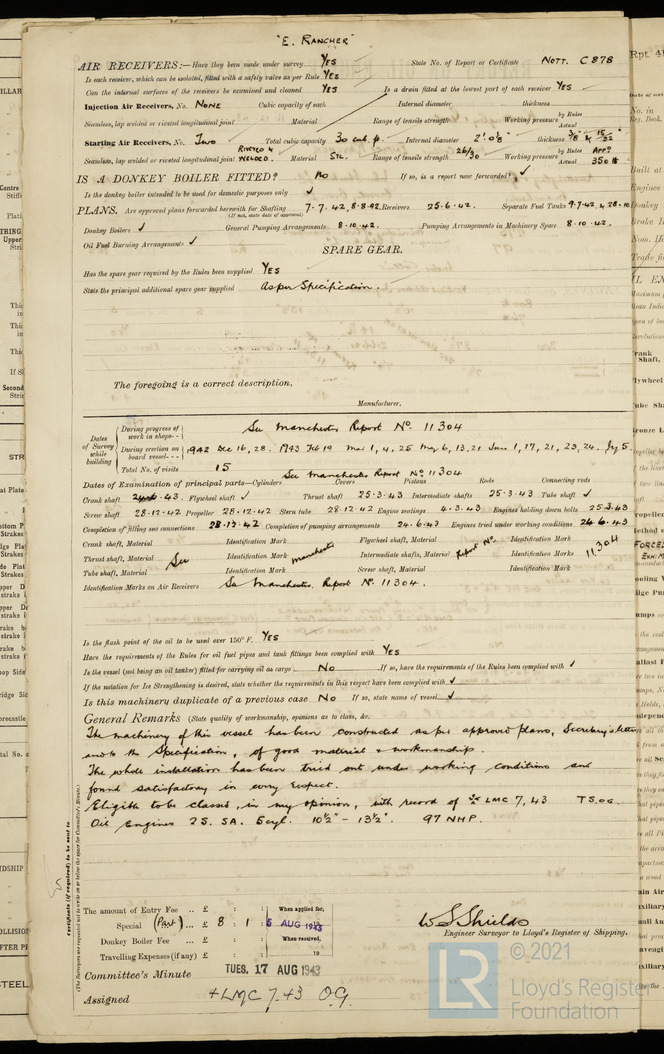 "E. RANCHER"
AIR RECEIVERS:—Have they been made under survey YES State No. of Report or Certificate NOTT. C 878
Is each receiver, which can be isolated, fitted with a safety valve as per Rule YES
Can the internal surfaces of the receivers be examined and cleaned YES Is a drain fitted at the lowest part of each receiver YES
Injection Air Receivers, No. NONE Cubic capacity of each Internal diameter thickness
Seamless, lap welded or riveted longitudinal joint Material Range of tensile strength Working pressure by Rules Actual
Starting Air Receivers, No. Two Total cubic capacity 30 cub. ft. Internal diameter 2' 0 1/8" thickness 3/8 & 15/32"
Seamless, lap welded or riveted longitudinal joint RIVETED & WELDED. Material STL. Range of tensile strength 26/30 Working pressure by Rules Actual 350 lb
IS A DONKEY BOILER FITTED? No If so, is a report now forwarded? ✓
Is the donkey boiler intended to be used for domestic purposes only ✓
PLANS. Are approved plans forwarded herewith for Shafting 7.7.42, 8.8.42. Receivers 25.6.42. Separate Fuel Tanks 9.7.42, & 28.10
(If not, state date of approval)
Donkey Boilers ✓ General Pumping Arrangements 8.10.42. Pumping Arrangements in Machinery Space 8.10.42.
Oil Fuel Burning Arrangements ✓
SPARE GEAR.
Has the spare gear required by the Rules been supplied YES
State the principal additional spare gear supplied As per Specification.
The foregoing is a correct description,
Manufacturer.
Dates of Survey while building
During progress of work in shops - - See Manchester Report No. 11304
During erection on board vessel - - - 1942 Dec 16, 28. 1943 Feb 19 Mar 1, 4, 25 May 6, 13, 21 June 1, 17, 21, 23, 24. July 5
Total No. of visits 15
Dates of Examination of principal parts—Cylinders Covers Pistons Rods Connecting rods See Manchester Report No. 11304
Crank shaft .43. Flywheel shaft ✓ Thrust shaft 25.3.43 Intermediate shafts 25.3.43 Tube shaft ✓
Screw shaft 28.12.42 Propeller 28.12.42 Stern tube 28.12.42 Engine seatings 4.3.43 Engines holding down bolts 25.3.43
Completion of fitting sea connections 28.12.42 Completion of pumping arrangements 24.6.43 Engines tried under working conditions 24.6.43
Crank shaft, Material Identification Mark Flywheel shaft, Material Identification Mark
Thrust shaft, Material See Identification Mark Manchester Intermediate shafts, Material Report No. Identification Marks 11304
Tube shaft, Material Identification Mark Screw shaft, Material Identification Mark
Identification Marks on Air Receivers See Manchester Report No. 11304.
Is the flash point of the oil to be used over 150° F. YES
Have the requirements of the Rules for oil fuel pipes and tank fittings been complied with YES
Is the vessel (not being an oil tanker) fitted for carrying oil as cargo No If so, have the requirements of the Rules been complied with ✓
If the notation for Ice Strengthening is desired, state whether the requirements in this respect have been complied with ✓
Is this machinery duplicate of a previous case No If so, state name of vessel ✓
General Remarks (State quality of workmanship, opinions as to class, &c.
The machinery of this vessel has been constructed as per approved plans, Secretary's letters
and to the Specification, of good material & workmanship.
The whole installation has been tried out under working conditions and
found satisfactory in every respect.
Eligible to be classed, in my opinion, with record of LMC 7,43 TS.OG.
Oil Engines 2S. SA. 5cyl. 10½" – 13½". 97 NHP.
Certificate (if required) to be sent to
(The Surveyors are requested not to write on or below the space for Committee's Minute.)
The amount of Entry Fee .. £ : : When applied for,
Special (Part) ... £ 8 : 1 : 5 AUG 1943
Donkey Boiler Fee ... £ : : When received,
Travelling Expenses (if any) £ : : 19
W S Shields
Engineer Surveyor to Lloyd's Register of Shipping.
Committee's Minute TUES. 17 AUG 1943
Assigned +LMC 7.43 O.G.
© 2021
Lloyd's Register
Foundation
LR